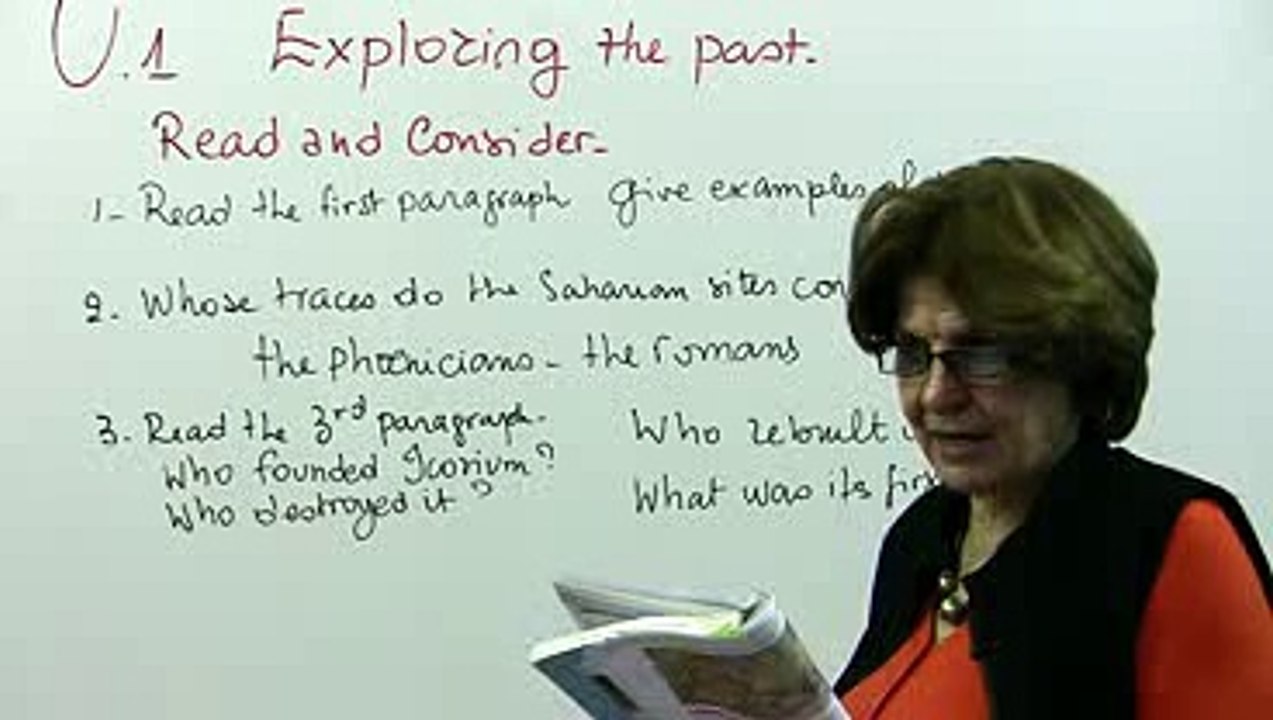 U.1 Exploring the past.
Read and Consider.
1- Read the first paragraph give examples of
2. Whose traces do the Saharian sites con
the phoenicians - the romans
3. Read the 3rd paragraph. Who rebuilt
Who founded Icosium? What was its fir
Who destroyed it?